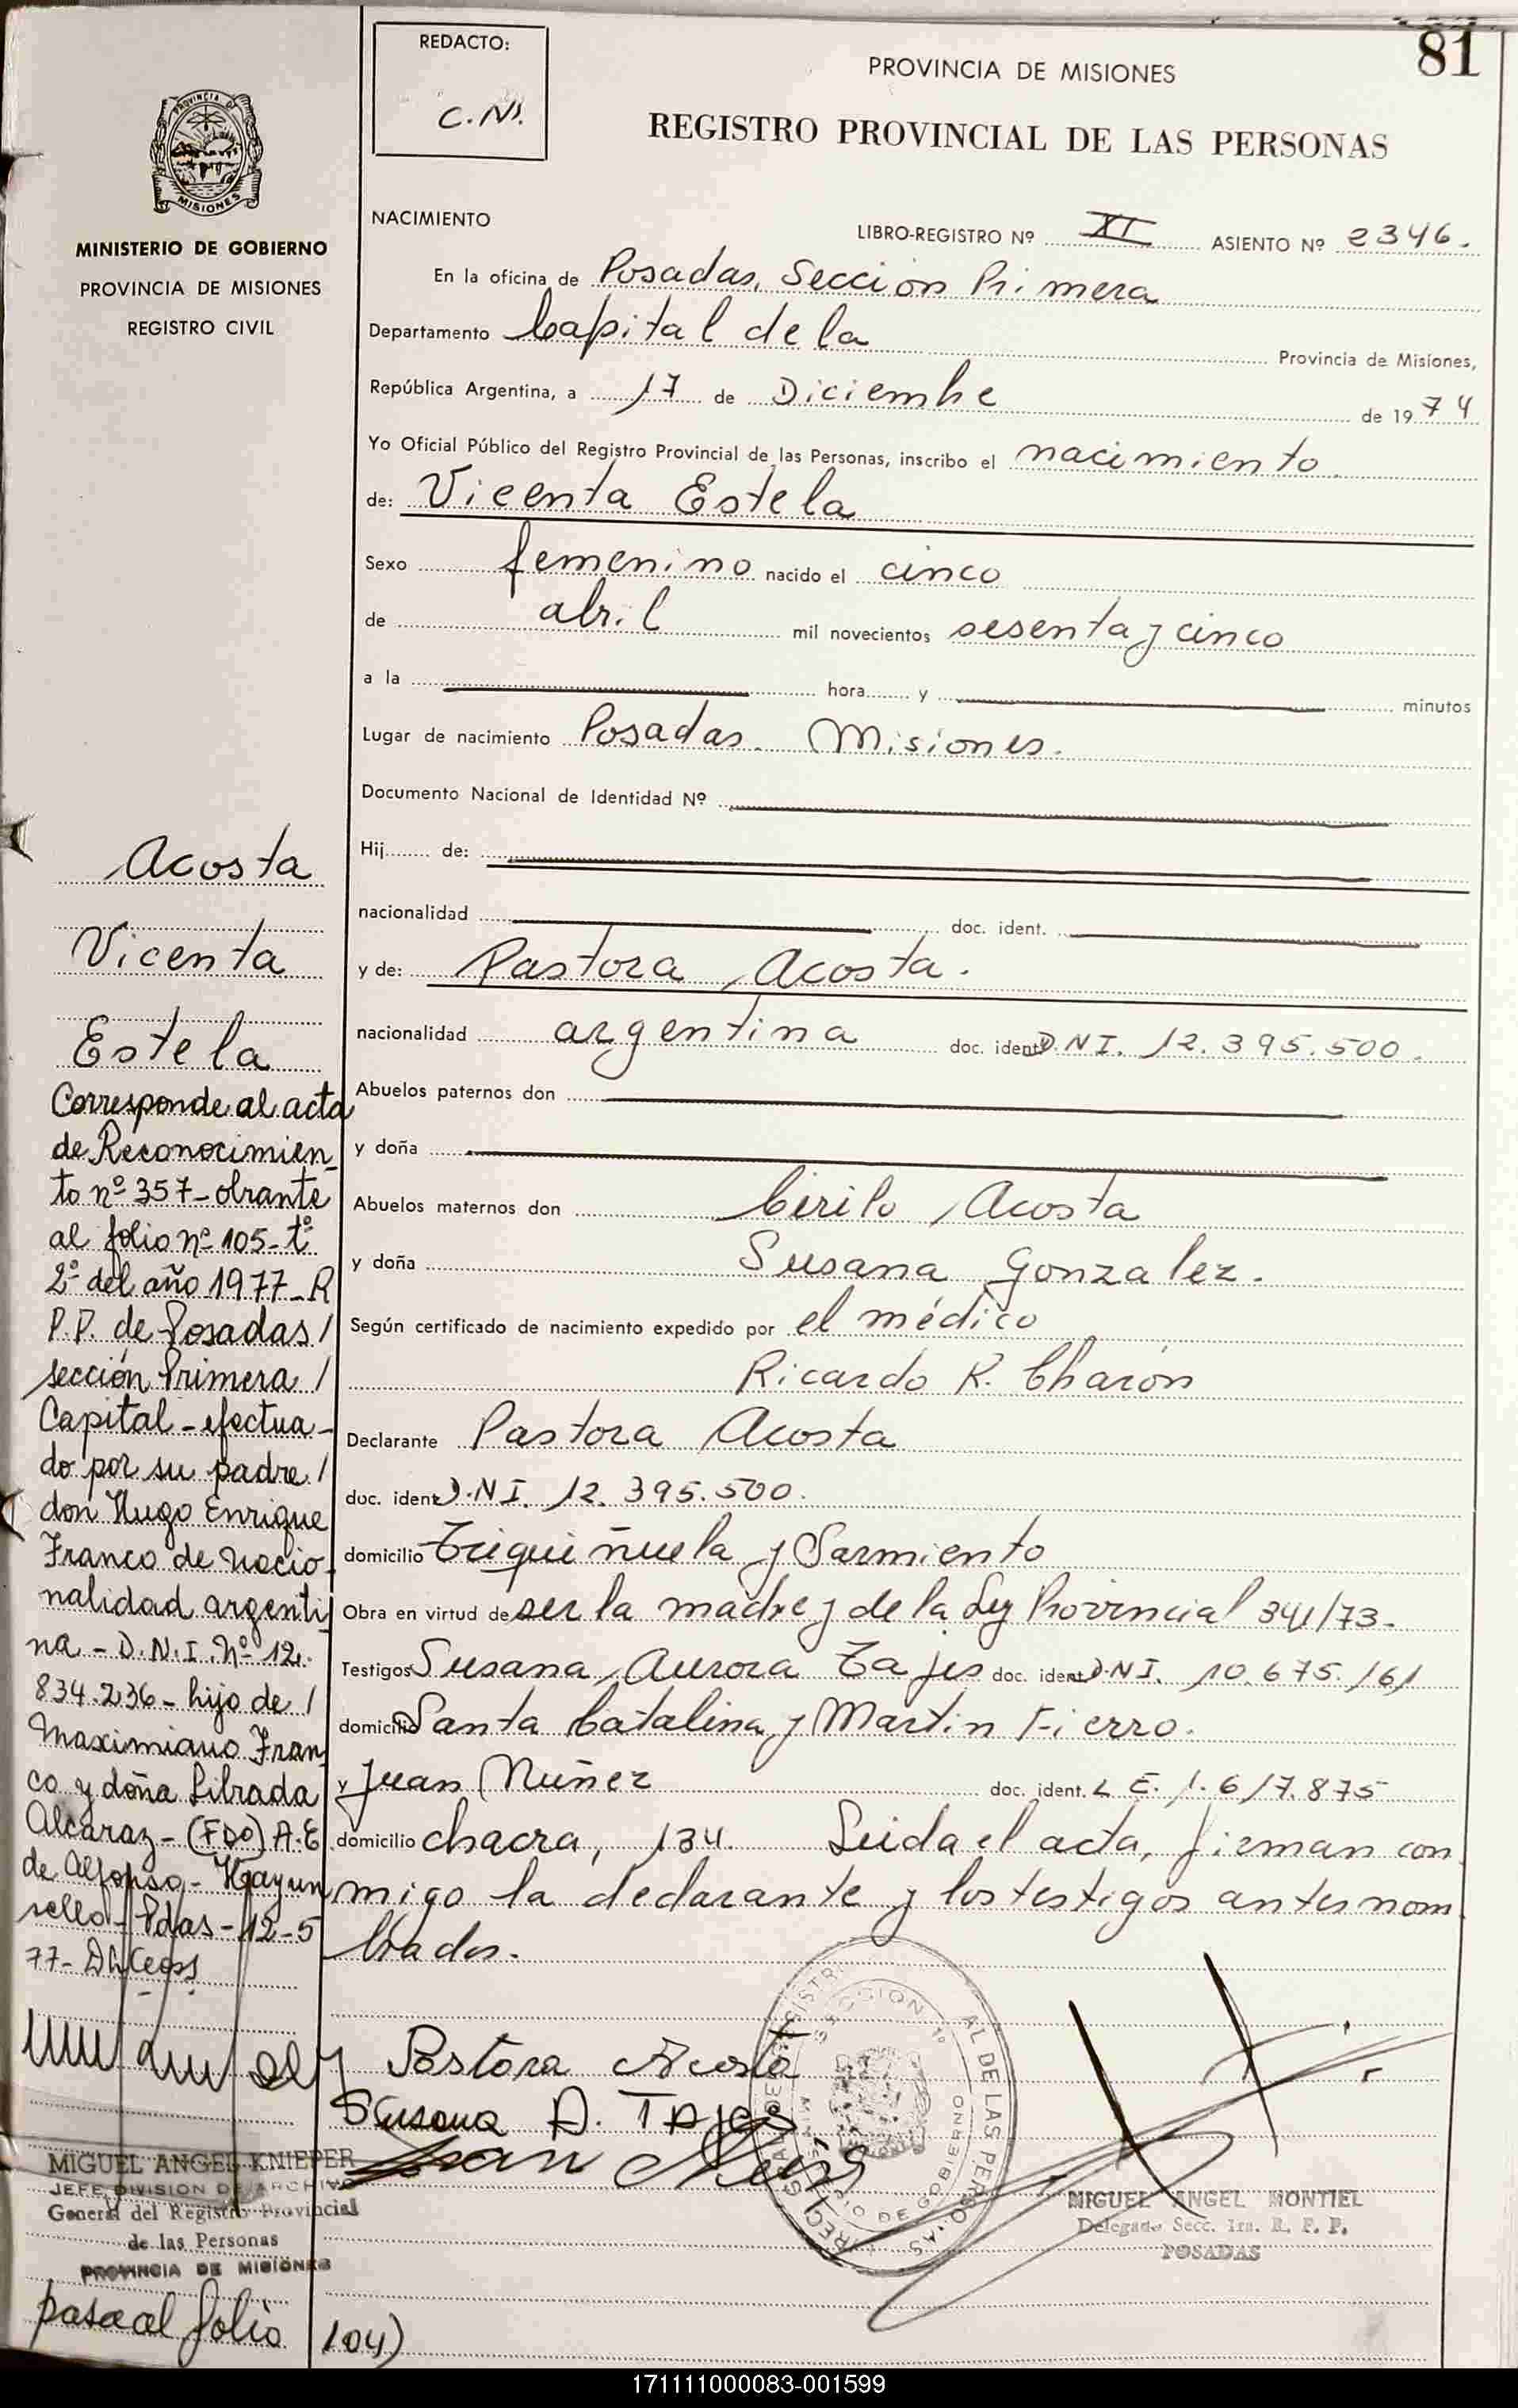 REDACTO:
C.N.
81
PROVINCIA DE MISIONES
REGISTRO PROVINCIAL DE LAS PERSONAS
PROVINCIA DE
MISIONES
MINISTERIO DE GOBIERNO
PROVINCIA DE MISIONES
REGISTRO CIVIL
NACIMIENTO
LIBRO-REGISTRO Nº XI ASIENTO Nº 2346.
En la oficina de Posadas, Sección Primera
Departamento Capital de la Provincia de Misiones,
República Argentina, a 17 de Diciembre de 1974
Yo Oficial Público del Registro Provincial de las Personas, inscribo el nacimiento
de: Vicenta Estela
Sexo femenino nacido el cinco
de abril mil novecientos sesenta y cinco
a la hora y minutos
Lugar de nacimiento Posadas. Misiones.
Documento Nacional de Identidad Nº
Hij de:
nacionalidad doc. ident.
y de: Pastora Acosta.
nacionalidad argentina doc. ident D.N.I. 12.395.500.
Abuelos paternos don
y doña
Abuelos maternos don Cirilo Acosta
y doña Susana Gonzalez.
Según certificado de nacimiento expedido por el médico
Ricardo R. Charón
Declarante Pastora Acosta
doc. ident D.N.I. 12.395.500.
domicilio Triquiñuela y Sarmiento
Obra en virtud de ser la madre y de la Ley Provincial 341/73-
Testigos Susana Aurora Tajes doc. ident D.N.I. 10.675.161
domicilio Santa Catalina y Martin Fierro.
y Juan Núñez doc. ident. L.E. 1.617.875
domicilio chacra, 134. Leida el acta, firman con
migo la declarante y los testigos antes nom
brados.
Acosta
Vicenta
Estela
Corresponde al acta
de Reconocimien-
to nº 357-obrante
al folio nº 105-tº
2º del año 1977-R
P.P. de Posadas/
sección Primera/
Capital-efectua-
do por su padre/
don Hugo Enrique
Franco de nacio-
nalidad argenti
na-D.N.I. Nº 12.
834.236-hijo de/
Maximiano Fran
co y doña Librada
Alcaraz-(FDO) A.E
de Alfonso-Hay un
sello-Pdas-12-5
77-
Pastora Acosta
Susana A. Tajes
Juan Núñez
SECCION 1ª
MINISTERIO DE GOBIERNO
MIGUEL ANGEL KNIEPER
JEFE DIVISION DE ARCHIVO
General del Registro Provincial
de las Personas
PROVINCIA DE MISIONES
MIGUEL ANGEL MONTIEL
Delegado Secc. 1ra. R. P. P.
POSADAS
pasa al folio 104)
171111000083-001599